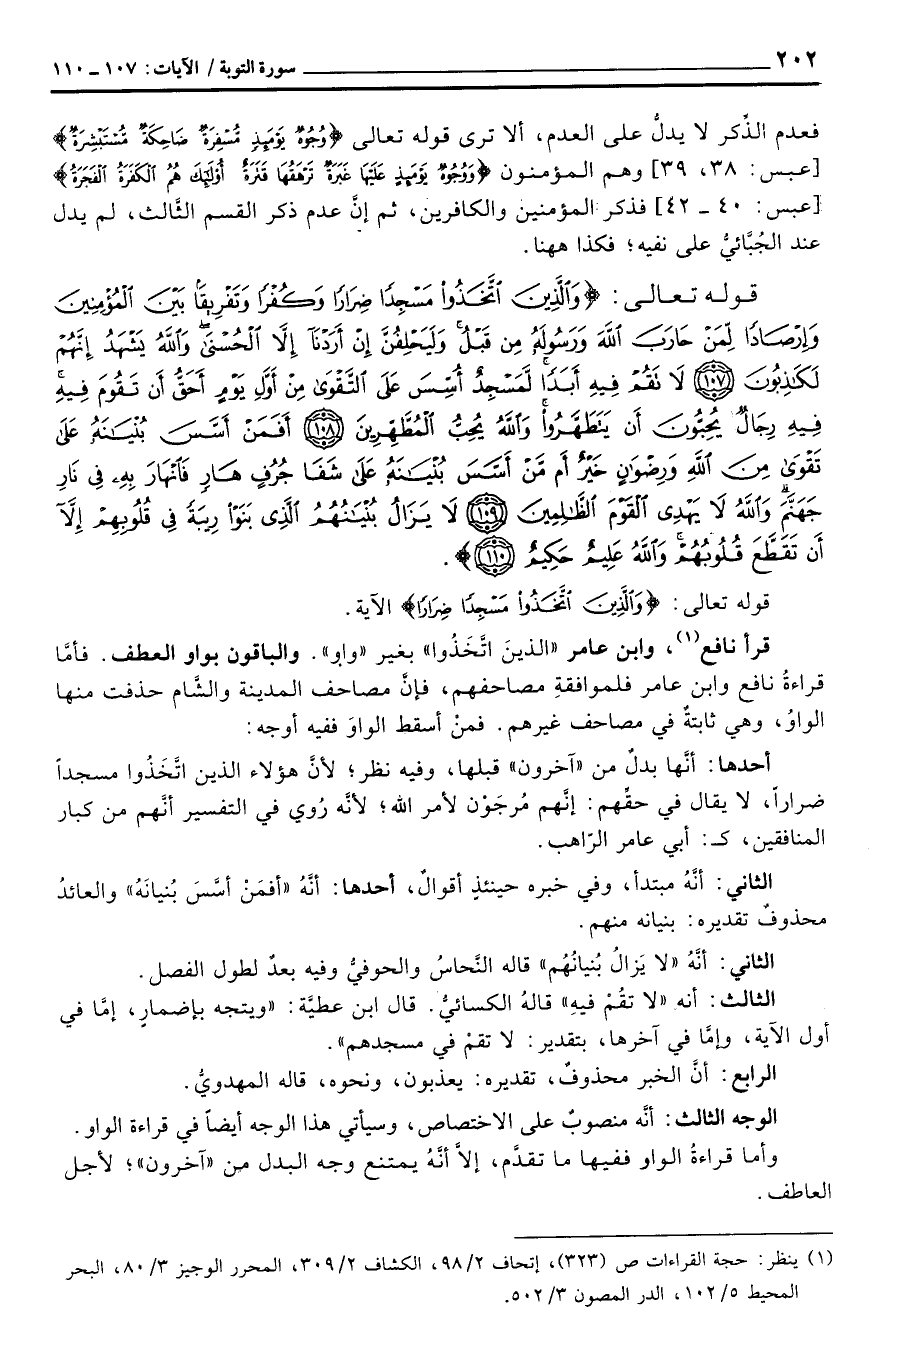 ٢٠٢ سورة التوبة / الآيات: ١٠٧ ـ ١١٠
فعدم الذِّكر لا يدلُّ على العدم، ألا ترى قوله تعالى ﴿وُجُوهٌ يَوْمَئِذٍ مُّسْفِرَةٌ ضَاحِكَةٌ مُّسْتَبْشِرَةٌ﴾
[عبس: ٣٨، ٣٩] وهم المؤمنون ﴿وَوُجُوهٌ يَوْمَئِذٍ عَلَيْهَا غَبَرَةٌ تَرْهَقُهَا قَتَرَةٌ أُوْلَٰٓئِكَ هُمُ ٱلْكَفَرَةُ ٱلْفَجَرَةُ﴾
[عبس: ٤٠ ـ ٤٢] فذكر المؤمنين والكافرين، ثم إنَّ عدم ذكر القسم الثَّالث، لم يدل
عند الجُبَّائيُّ على نفيه؛ فكذا ههنا.
قوله تعالى: ﴿وَٱلَّذِينَ ٱتَّخَذُواْ مَسْجِدًا ضِرَارًا وَكُفْرًا وَتَفْرِيقًۢا بَيْنَ ٱلْمُؤْمِنِينَ
وَإِرْصَادًا لِّمَنْ حَارَبَ ٱللَّهَ وَرَسُولَهُۥ مِن قَبْلُ ۚ وَلَيَحْلِفُنَّ إِنْ أَرَدْنَآ إِلَّا ٱلْحُسْنَىٰ ۖ وَٱللَّهُ يَشْهَدُ إِنَّهُمْ
لَكَٰذِبُونَ ١٠٧ لَا تَقُمْ فِيهِ أَبَدًا ۚ لَّمَسْجِدٌ أُسِّسَ عَلَى ٱلتَّقْوَىٰ مِنْ أَوَّلِ يَوْمٍ أَحَقُّ أَن تَقُومَ فِيهِ ۚ
فِيهِ رِجَالٌ يُحِبُّونَ أَن يَتَطَهَّرُواْ ۚ وَٱللَّهُ يُحِبُّ ٱلْمُطَّهِّرِينَ ١٠٨ أَفَمَنْ أَسَّسَ بُنْيَٰنَهُۥ عَلَىٰ
تَقْوَىٰ مِنَ ٱللَّهِ وَرِضْوَٰنٍ خَيْرٌ أَم مَّنْ أَسَّسَ بُنْيَٰنَهُۥ عَلَىٰ شَفَا جُرُفٍ هَارٍ فَٱنْهَارَ بِهِۦ فِى نَارِ
جَهَنَّمَ ۗ وَٱللَّهُ لَا يَهْدِى ٱلْقَوْمَ ٱلظَّٰلِمِينَ ١٠٩ لَا يَزَالُ بُنْيَٰنُهُمُ ٱلَّذِى بَنَوْاْ رِيبَةً فِى قُلُوبِهِمْ إِلَّآ
أَن تَقَطَّعَ قُلُوبُهُمْ ۗ وَٱللَّهُ عَلِيمٌ حَكِيمٌ ١١٠﴾.
قوله تعالى: ﴿وَٱلَّذِينَ ٱتَّخَذُواْ مَسْجِدًا ضِرَارًا﴾ الآية.
قرأ نافع(١)، وابن عامر «الذينَ اتَّخَذُوا» بغير «واو». والباقون بواو العطف. فأمَّا
قراءةُ نافع وابن عامر فلموافقةِ مصاحفهم، فإنَّ مصاحف المدينة والشَّام حذفت منها
الواوُ، وهي ثابتةٌ في مصاحف غيرهم. فمنْ أسقط الواوَ ففيه أوجه:
أحدها: أنَّها بدلٌ من «آخرون» قبلها، وفيه نظر؛ لأنَّ هؤلاء الذين اتَّخَذُوا مسجداً
ضراراً، لا يقال في حقِّهم: إنَّهم مُرجَوْن لأمر الله؛ لأنَّه رُوي في التفسير أنَّهم من كبار
المنافقين، كـ: أبي عامر الرّاهب.
الثاني: أنَّهُ مبتدأ، وفي خبره حينئذٍ أقوالٌ، أحدها: أنَّهُ «أفمَنْ أسَّسَ بُنيانَهُ» والعائدُ
محذوفٌ تقديره: بنيانه منهم.
الثاني: أنَّهُ «لا يَزالُ بُنيانُهُم» قاله النَّحاسُ والحوفيُّ وفيه بعدٌ لطول الفصل.
الثالث: أنه «لا تقُمْ فيهِ» قالهُ الكسائيُّ. قال ابن عطيَّة: «ويتجه بإضمارٍ، إمَّا في
أول الآية، وإمَّا في آخرها، بتقدير: لا تقمْ في مسجدهم».
الرابع: أنَّ الخبر محذوفٌ، تقديره: يعذبون، ونحوه، قاله المهدويُّ.
الوجه الثالث: أنَّه منصوبٌ على الاختصاص، وسيأتي هذا الوجه أيضاً في قراءة الواو.
وأما قراءةُ الواو ففيها ما تقدَّم، إلاَّ أنَّهُ يمتنع وجه البدل من «آخرون»؛ لأجل
العاطف.
(١) ينظر: حجة القراءات ص (٣٢٣)، إتحاف ٩٨/٢، الكشاف ٣٠٩/٢، المحرر الوجيز ٨٠/٣، البحر
المحيط ١٠٢/٥، الدر المصون ٥٠٢/٣.